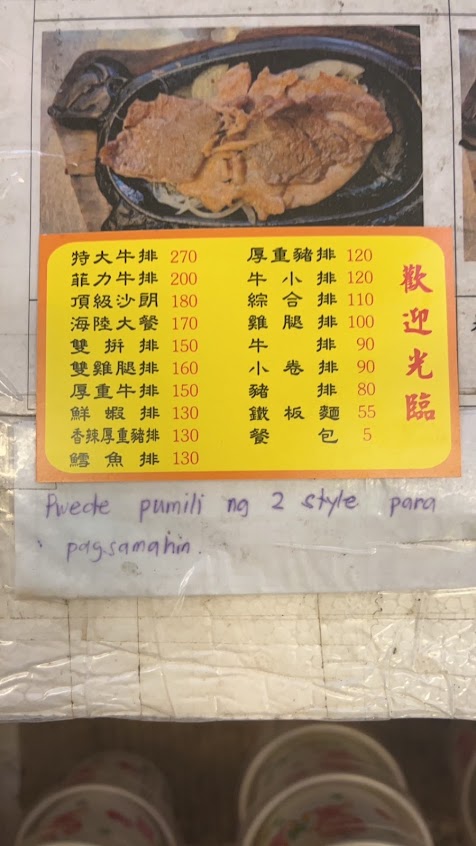 特大牛排 270
菲力牛排 200
頂級沙朗 180
海陸大餐 170
雙拼排 150
雙雞腿排 160
厚重牛排 150
鮮蝦排 130
香辣厚重豬排 130
鱈魚排 130
厚重豬排 120
牛小排 120
綜合排 110
雞腿排 100
牛排 90
小卷排 90
豬排 80
鐵板麵 55
餐包 5
歡迎光臨
Pwede pumili ng 2 style para
pagsamahin.